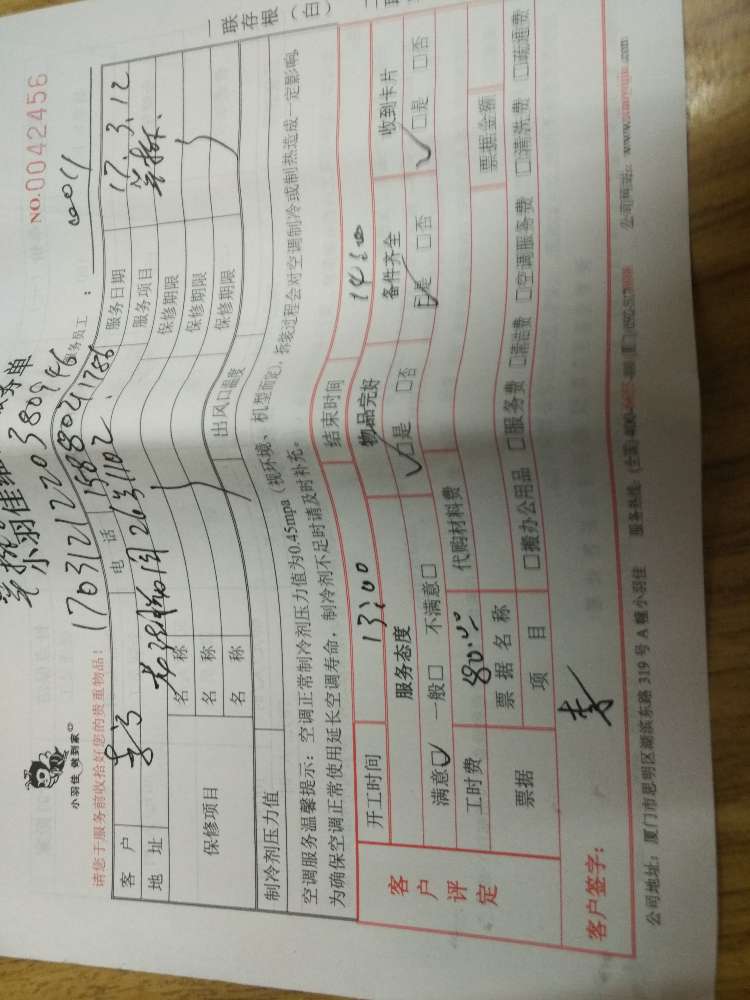 小羽佳 做到家
NO.0042456
1703121220380946
请您于服务前收拾好您的贵重物品！
服务员工：
客户
电话 1588041786
服务日期 17.3.12
地址
服务项目
保修项目
名称
保修期限
名称
保修期限
名称
保修期限
制冷剂压力值
出风口温度
空调服务温馨提示：空调正常制冷剂压力值为0.45mpa（视环境、机型而定），拆装过程会对空调制冷或制热造成一定影响，
为确保空调正常使用延长空调寿命，制冷剂不足时请及时补充。
客户评定
开工时间 13:00 结束时间 14:00
服务态度 物品完好 备件齐全 收到卡片
满意□ 一般□ 不满意□ □是 □否 □是 □否 □是 □否
工时费 80.00 代购材料费
票据 票据名称 票据金额
项目 □搬办公用品 □服务费 □清洁费 □空调服务费 □清洗费 □疏通费
客户签字： 李
公司地址：厦门市思明区湖滨东路 319 号 A 幢小羽佳 服务热线：(全国)400- 公司网址：www.xiaoyujia.com
一联存根（白）